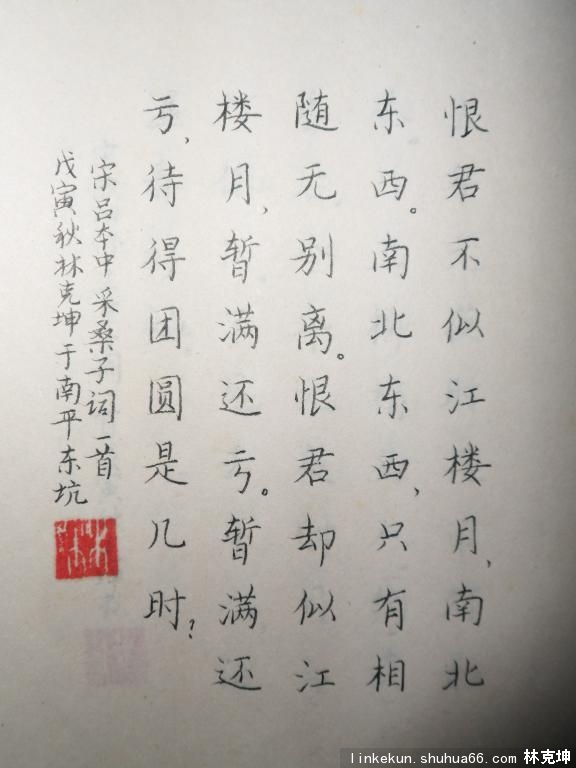 恨君不似江楼月，南北
东西。南北东西，只有相
随无别离。恨君却似江
楼月，暂满还亏。暂满还
亏，待得团圆是几时？
宋吕本中采桑子词一首
戊寅秋林克坤于南平东坑
林
linkekun.shuhua66.com 林克坤